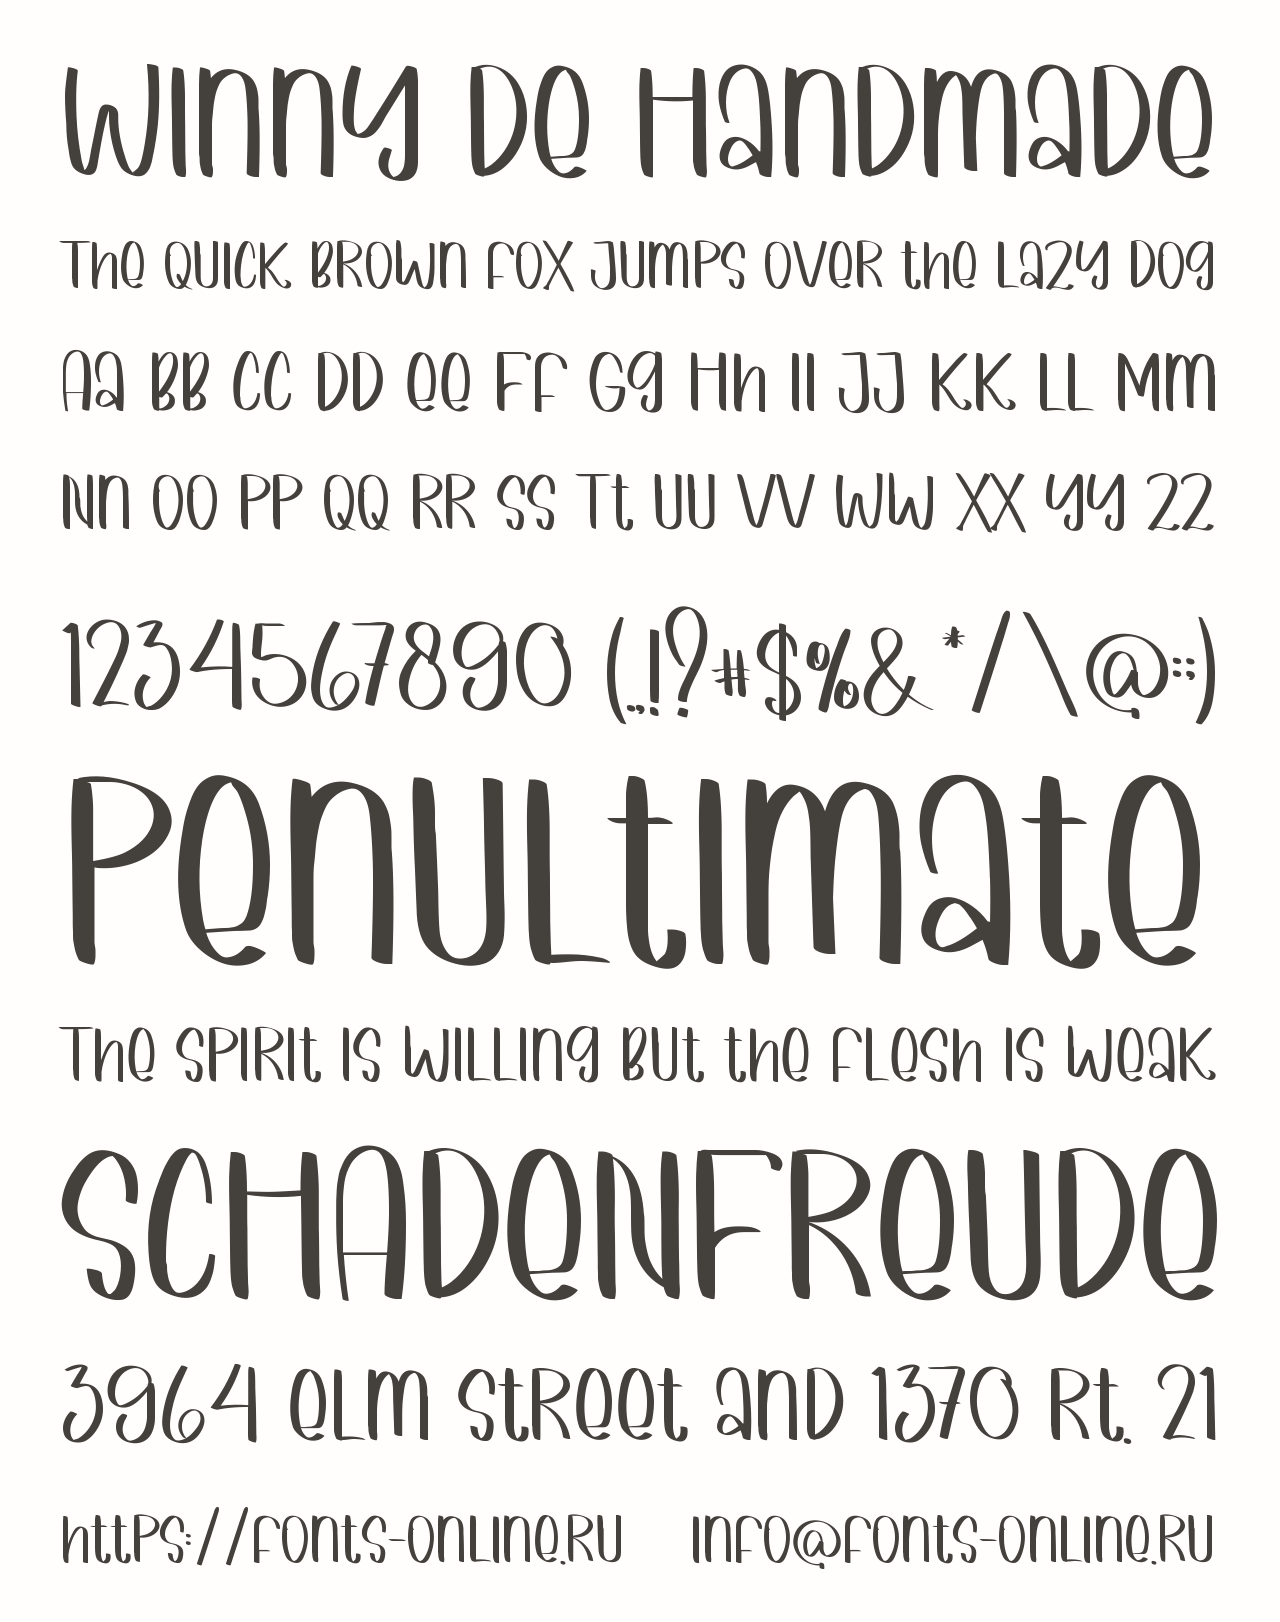 Winny Do Handmade
The Quick Brown Fox Jumps Over the Lazy Dog
Aa Bb Cc Dd Ee Ff Gg Hh Ii Jj Kk Ll Mm
Nn Oo Pp Qq Rr Ss Tt Uu Vv Ww Xx Yy Zz
1234567890 (.,!?#$%& */\@:;)
Penultimate
The spirit is willing but the flesh is weak
SCHADENFREUDE
3964 Elm Street and 1370 Rt. 21
https://fonts-online.ru info@fonts-online.ru